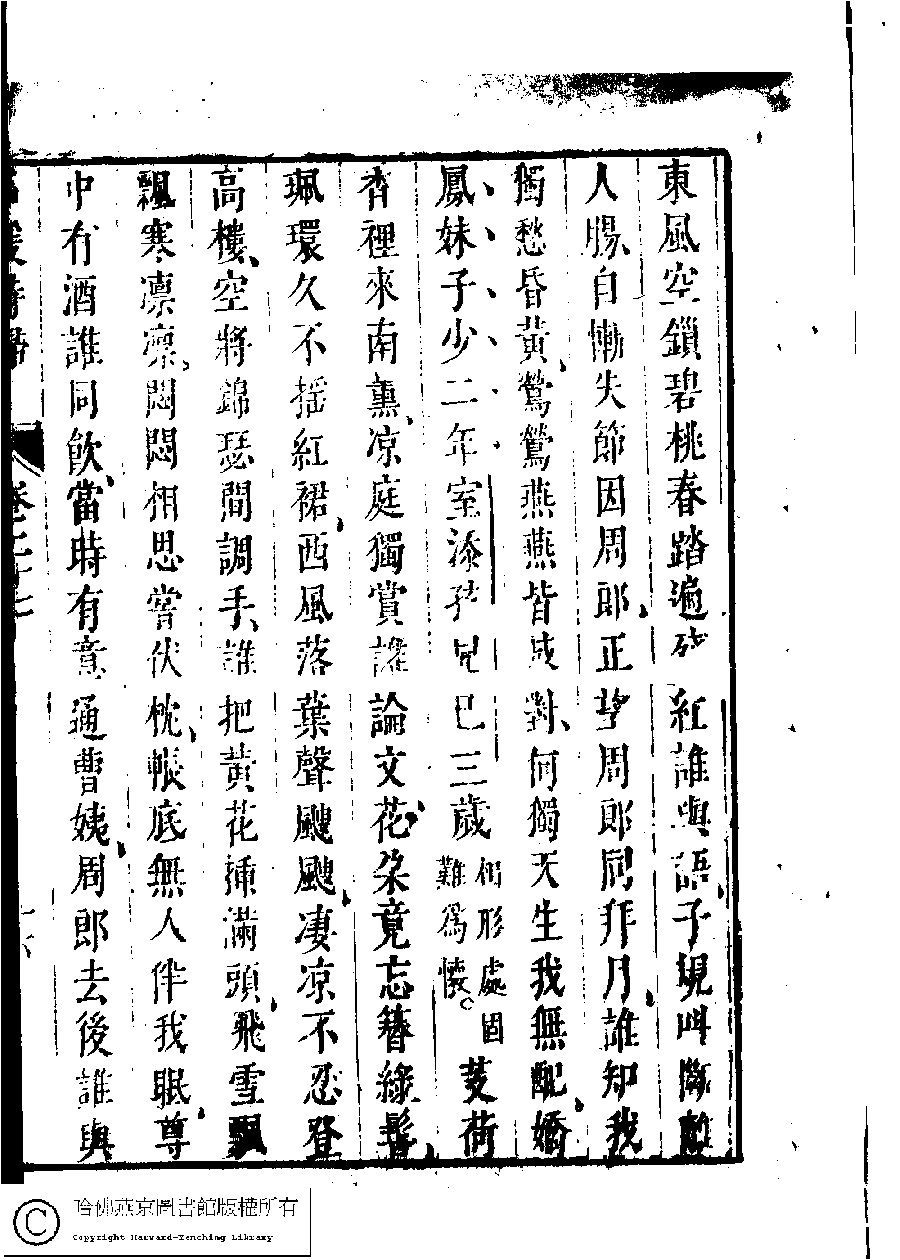 東風空鎖碧桃春踏遍殘紅誰與語子規叫斷離
人腸自慚失節因周郎正夢周郎同拜月誰知我
獨愁昏黃鶯鶯燕燕皆成對何獨天生我無配嬌
鳳妹子少二年室添孩兒已三歲相形處固難爲懷芰荷
香裡來南薰凉庭獨賞誰論文花朵竟忘簪綠鬢
珮環久不搖紅裙西風落葉聲颼颼凄凉不忍登
高樓空將錦瑟間調手誰把黃花揷滿頭飛雪飄
飄寒凛凛悶悶相思嘗伏枕帳底無人伴我眠尊
中有酒誰同飲當時有意通曹姨周郎去後誰與
媛詩歸 卷之二十七
哈佛燕京圖書館版權所有
Copyright Harvard-Yenching Library